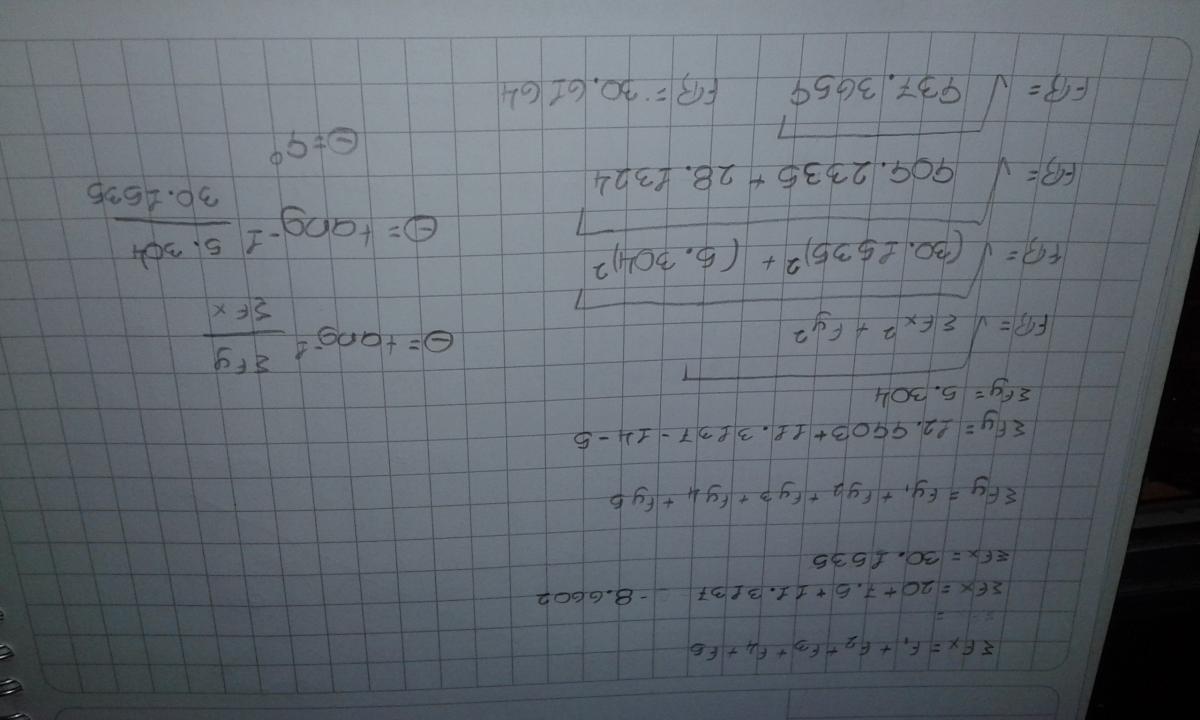 ΣFx = F₁ + F₂ + F₃ + F₄ + F₅
ΣFx = 20 + 7.5 + 11.3137 - 8.6602
ΣFx = 30.1535
ΣFy = Fy₁ + Fy₂ + Fy₃ + Fy₄ + Fy₅
ΣFy = 12.9903 + 11.3137 - 14 - 5
ΣFy = 5.304
FR = √ΣFx² + Fy²
FR = √(30.1535)² + (5.304)²
FR = √909.2335 + 28.1324
FR = √937.3659 FR = 30.6164
θ = tang⁻¹ ΣFy / ΣFx
θ = tang⁻¹ 5.304 / 30.1535
θ = 9°